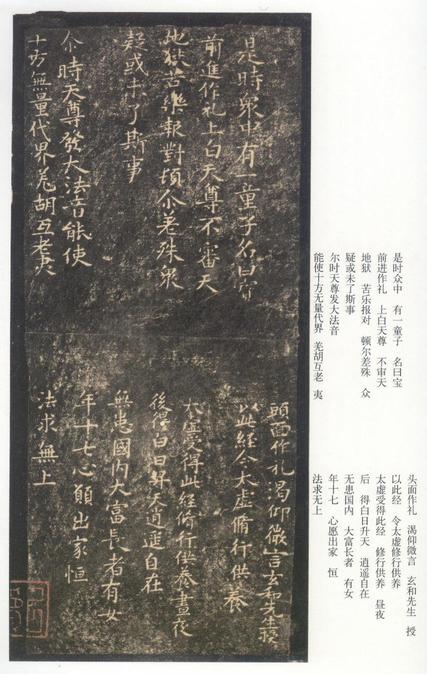 是時衆中有一童子名曰寶
前進作礼上白天尊不審天
地獄苦樂報對頓尒差殊衆
疑或未了斯事
尒時天尊發大法音能使
十方無量代界羌胡互老夷
頭面作礼渴仰微言玄和先生授
以此經令太虛脩行供養
太虛受得此經脩行供養晝夜
後得白日昇天逍遥自在
無患國内大富長者有女
年十七心願出家恒
法求無上
是时众中 有一童子 名曰宝
前进作礼 上白天尊 不审天
地狱 苦乐报对 顿尔差殊 众
疑或未了斯事
尔时天尊发大法音
能使十方无量代界 羌胡互老 夷
头面作礼 渴仰微言 玄和先生 授
以此经 令太虚修行供养
太虚受得此经 修行供养 昼夜
后 得白日升天 逍遥自在
无患国内 大富长者 有女
年十七 心愿出家 恒
法求无上